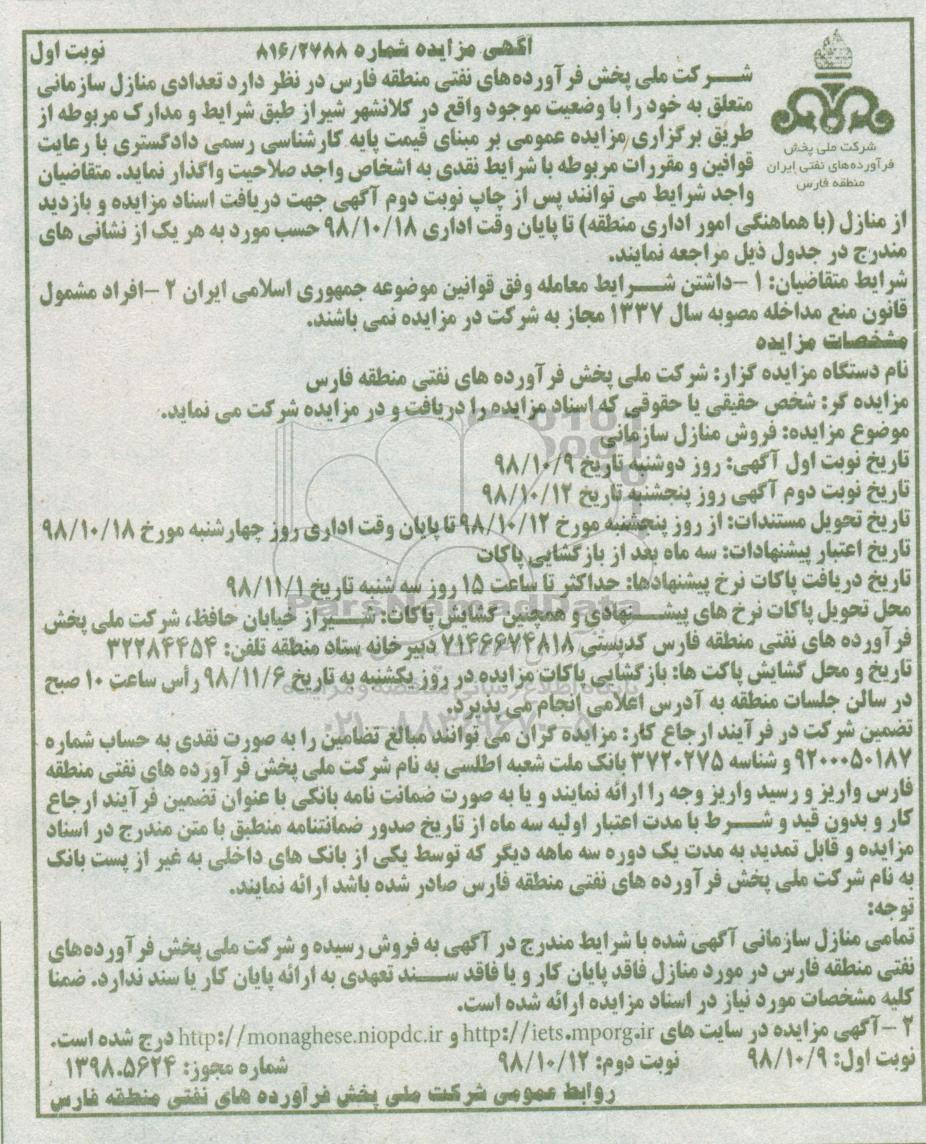 آگهی مزایده شماره ۸۱۶/۲۷۸۸
نوبت اول
شرکت ملی پخش
فرآورده‌های نفتی ایران
منطقه فارس
شرکت ملی پخش فرآورده‌های نفتی منطقه فارس در نظر دارد تعدادی منازل سازمانی
متعلق به خود را با وضعیت موجود واقع در کلانشهر شیراز طبق شرایط و مدارک مربوطه از
طریق برگزاری مزایده عمومی بر مبنای قیمت پایه کارشناسی رسمی دادگستری با رعایت
قوانین و مقررات مربوطه با شرایط نقدی به اشخاص واجد صلاحیت واگذار نماید. متقاضیان
واجد شرایط می توانند پس از چاپ نوبت دوم آگهی جهت دریافت اسناد مزایده و بازدید
از منازل (با هماهنگی امور اداری منطقه) تا پایان وقت اداری ۹۸/۱۰/۱۸ حسب مورد به هر یک از نشانی های
مندرج در جدول ذیل مراجعه نمایند.
شرایط متقاضیان: ۱ -داشتن شرایط معامله وفق قوانین موضوعه جمهوری اسلامی ایران ۲ -افراد مشمول
قانون منع مداخله مصوبه سال ۱۳۳۷ مجاز به شرکت در مزایده نمی باشند.
مشخصات مزایده
نام دستگاه مزایده گزار: شرکت ملی پخش فرآورده های نفتی منطقه فارس
مزایده گر: شخص حقیقی یا حقوقی که اسناد مزایده را دریافت و در مزایده شرکت می نماید.
موضوع مزایده: فروش منازل سازمانی
تاریخ نوبت اول آگهی: روز دوشنبه تاریخ ۹۸/۱۰/۹
تاریخ نوبت دوم آگهی روز پنجشنبه تاریخ ۹۸/۱۰/۱۲
تاریخ تحویل مستندات: از روز پنجشنبه مورخ ۹۸/۱۰/۱۲ تا پایان وقت اداری روز چهارشنبه مورخ ۹۸/۱۰/۱۸
تاریخ اعتبار پیشنهادات: سه ماه بعد از بازگشایی پاکات
تاریخ دریافت پاکات نرخ پیشنهادها: حداکثر تا ساعت ۱۵ روز سه شنبه تاریخ ۹۸/۱۱/۱
ParsNamadData
محل تحویل پاکات نرخ های پیشنهادی و همچنین گشایش پاکات: شیراز خیابان حافظ، شرکت ملی پخش
فرآورده های نفتی منطقه فارس کدپستی ۷۱۴۶۶۷۴۸۱۸ دبیرخانه ستاد منطقه تلفن: ۳۲۲۸۴۴۵۴
تاریخ و محل گشایش پاکت ها: بازگشایی پاکات مزایده در روز یکشنبه به تاریخ ۹۸/۱۱/۶ رأس ساعت ۱۰ صبح
در سالن جلسات منطقه به آدرس اعلامی انجام می پذیرد.
تضمین شرکت در فرآیند ارجاع کار: مزایده گران می توانند مبالغ تضامین را به صورت نقدی به حساب شماره
۹۲۰۰۰۵۰۱۸۷ و شناسه ۳۷۲۰۲۷۵ بانک ملت شعبه اطلسی به نام شرکت ملی پخش فرآورده های نفتی منطقه
فارس واریز و رسید واریز وجه را ارائه نمایند و یا به صورت ضمانت نامه بانکی با عنوان تضمین فرآیند ارجاع
کار و بدون قید و شرط با مدت اعتبار اولیه سه ماه از تاریخ صدور ضمانتنامه منطبق با متن مندرج در اسناد
مزایده و قابل تمدید به مدت یک دوره سه ماهه دیگر که توسط یکی از بانک های داخلی به غیر از پست بانک
به نام شرکت ملی پخش فرآورده های نفتی منطقه فارس صادر شده باشد ارائه نمایند.
توجه:
تمامی منازل سازمانی آگهی شده با شرایط مندرج در آگهی به فروش رسیده و شرکت ملی پخش فرآورده‌های
نفتی منطقه فارس در مورد منازل فاقد پایان کار و یا فاقد سند تعهدی به ارائه پایان کار یا سند ندارد. ضمنا
کلیه مشخصات مورد نیاز در اسناد مزایده ارائه شده است.
۲ -آگهی مزایده در سایت های http://iets.mporg.ir و http://monaghese.niopdc.ir درج شده است.
نوبت اول: ۹۸/۱۰/۹ نوبت دوم: ۹۸/۱۰/۱۲ شماره مجوز: ۱۳۹۸.۵۶۲۴
روابط عمومی شرکت ملی پخش فرآورده های نفتی منطقه فارس